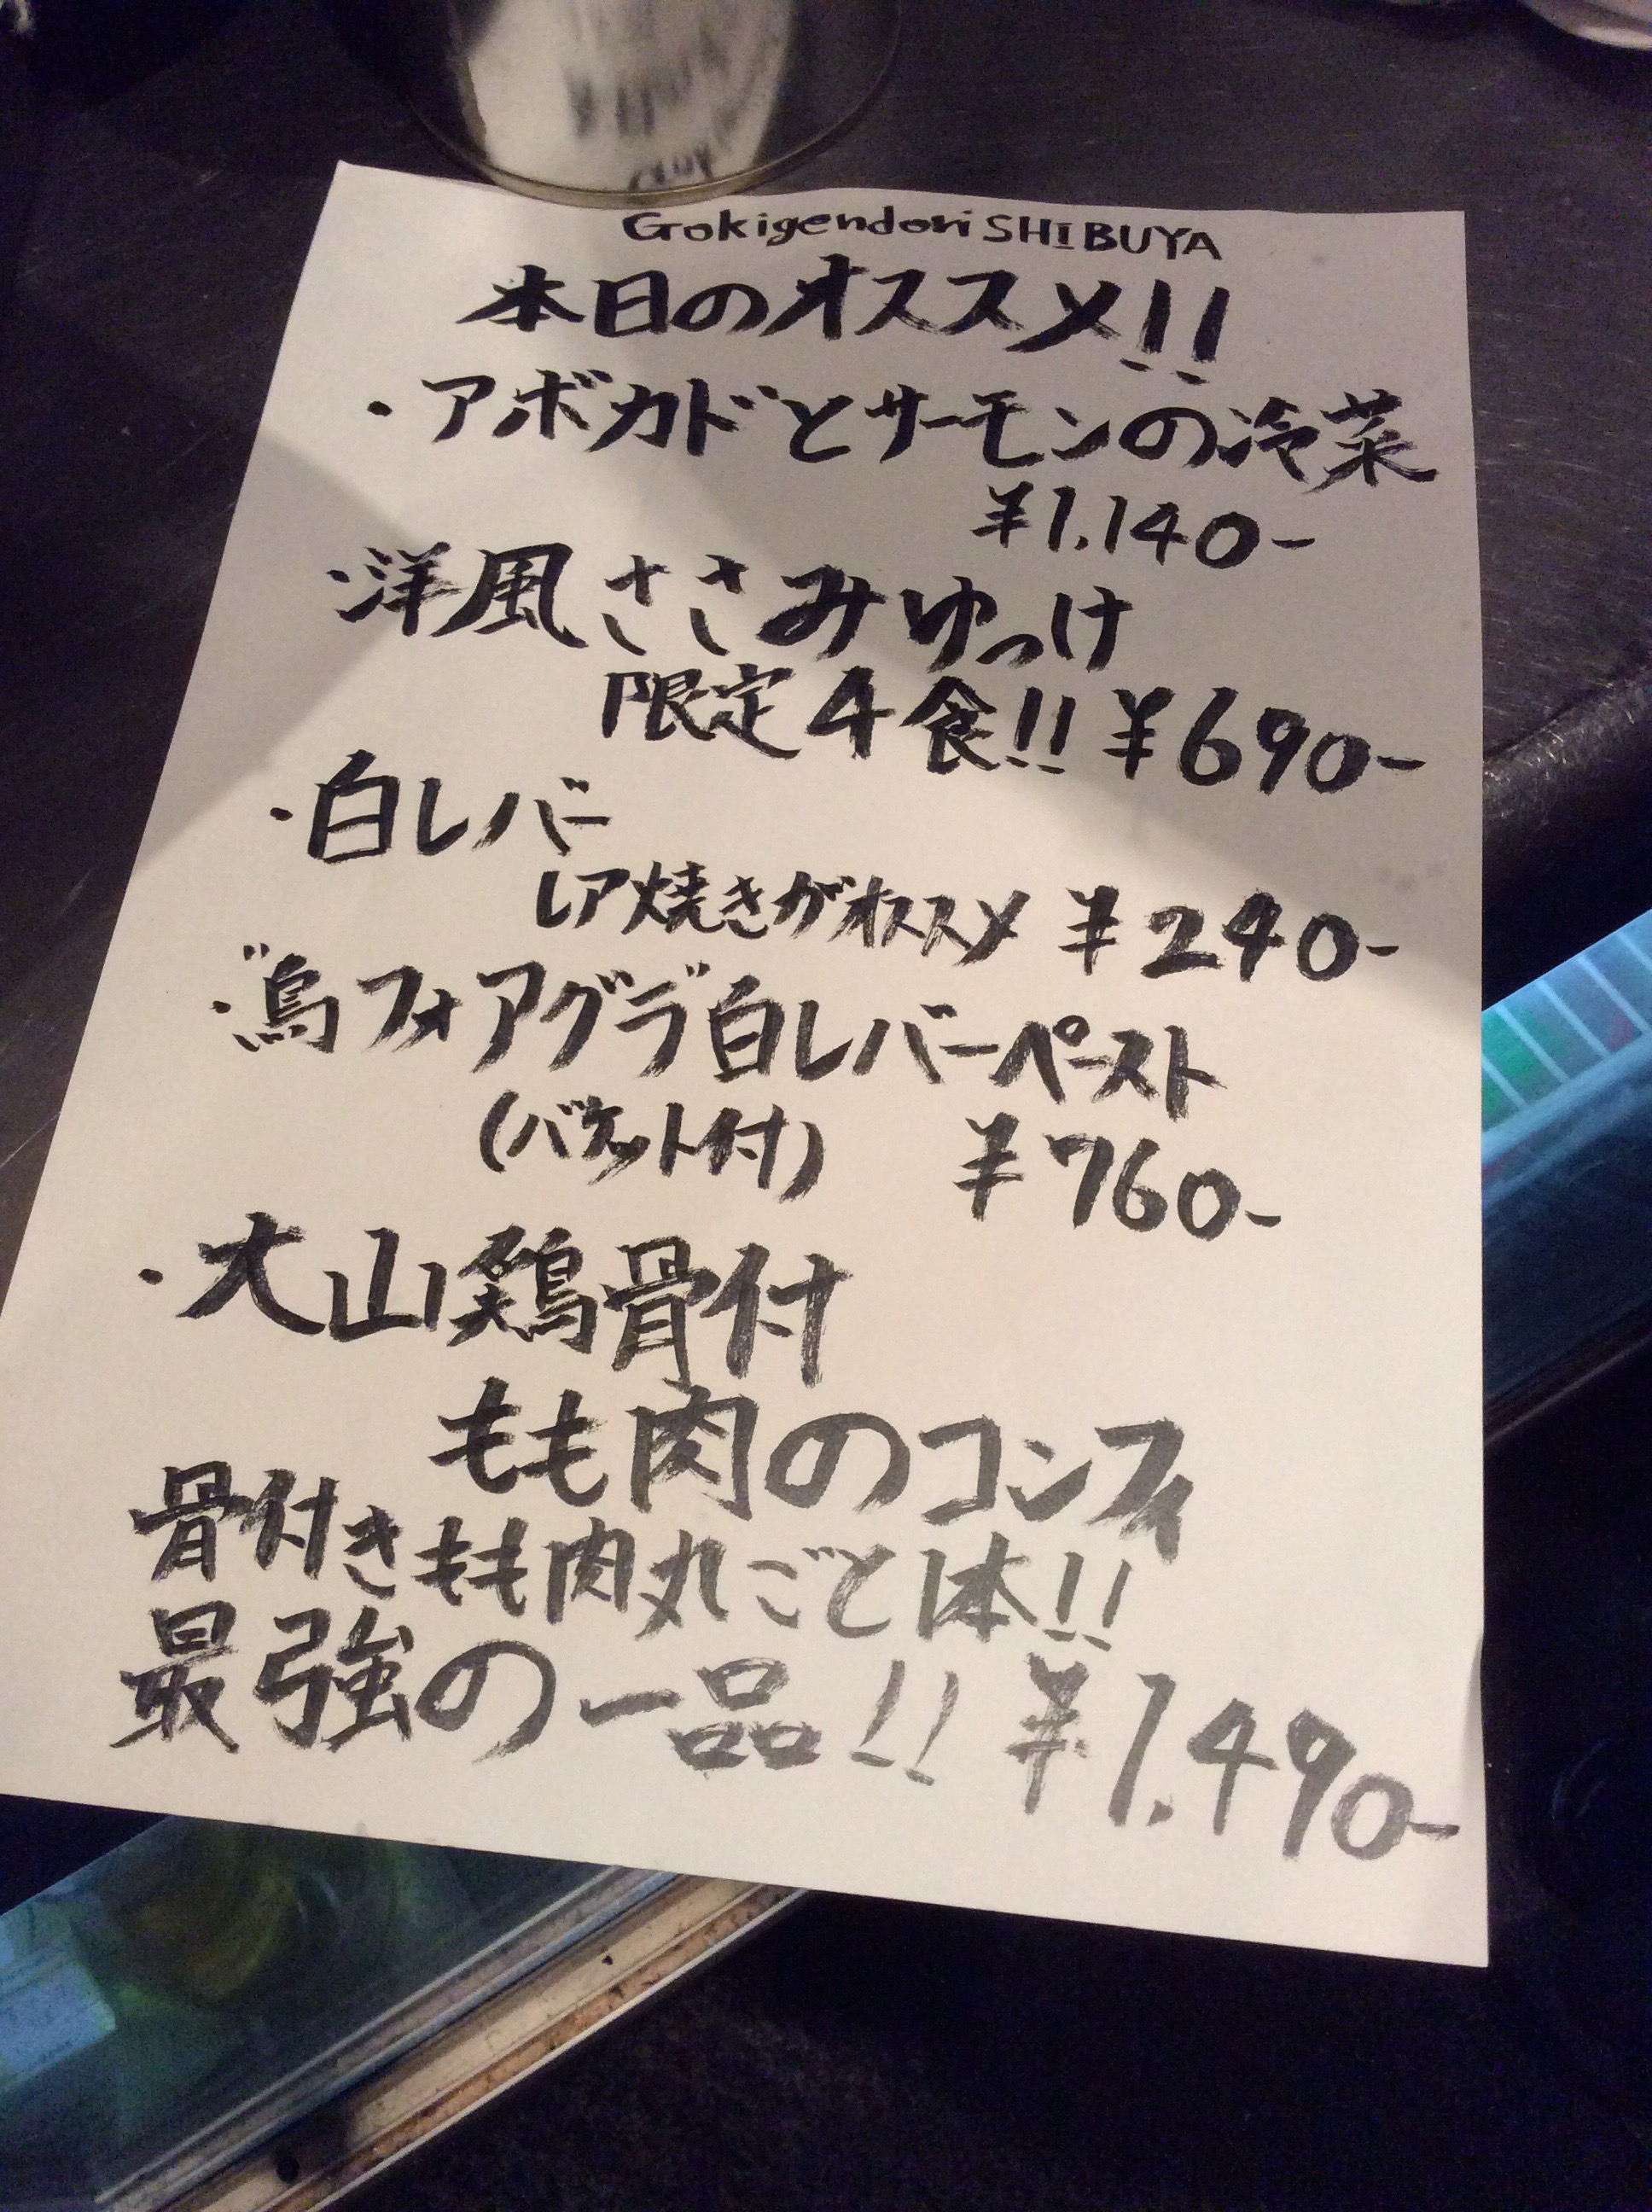 Gokigendori SHIBUYA
本日のオススメ!!
・アボカドとサーモンの冷菜
¥1.140-
・洋風ささみゆっけ
限定4食!! ¥690-
・白レバー
レア焼きがオススメ ¥240-
・"鳥フォアグラ"白レバーペースト
(バケット付) ¥760-
・大山鶏骨付
もも肉のコンフィ
骨付きもも肉丸ごと1本!!
最強の一品!! ¥1.490-